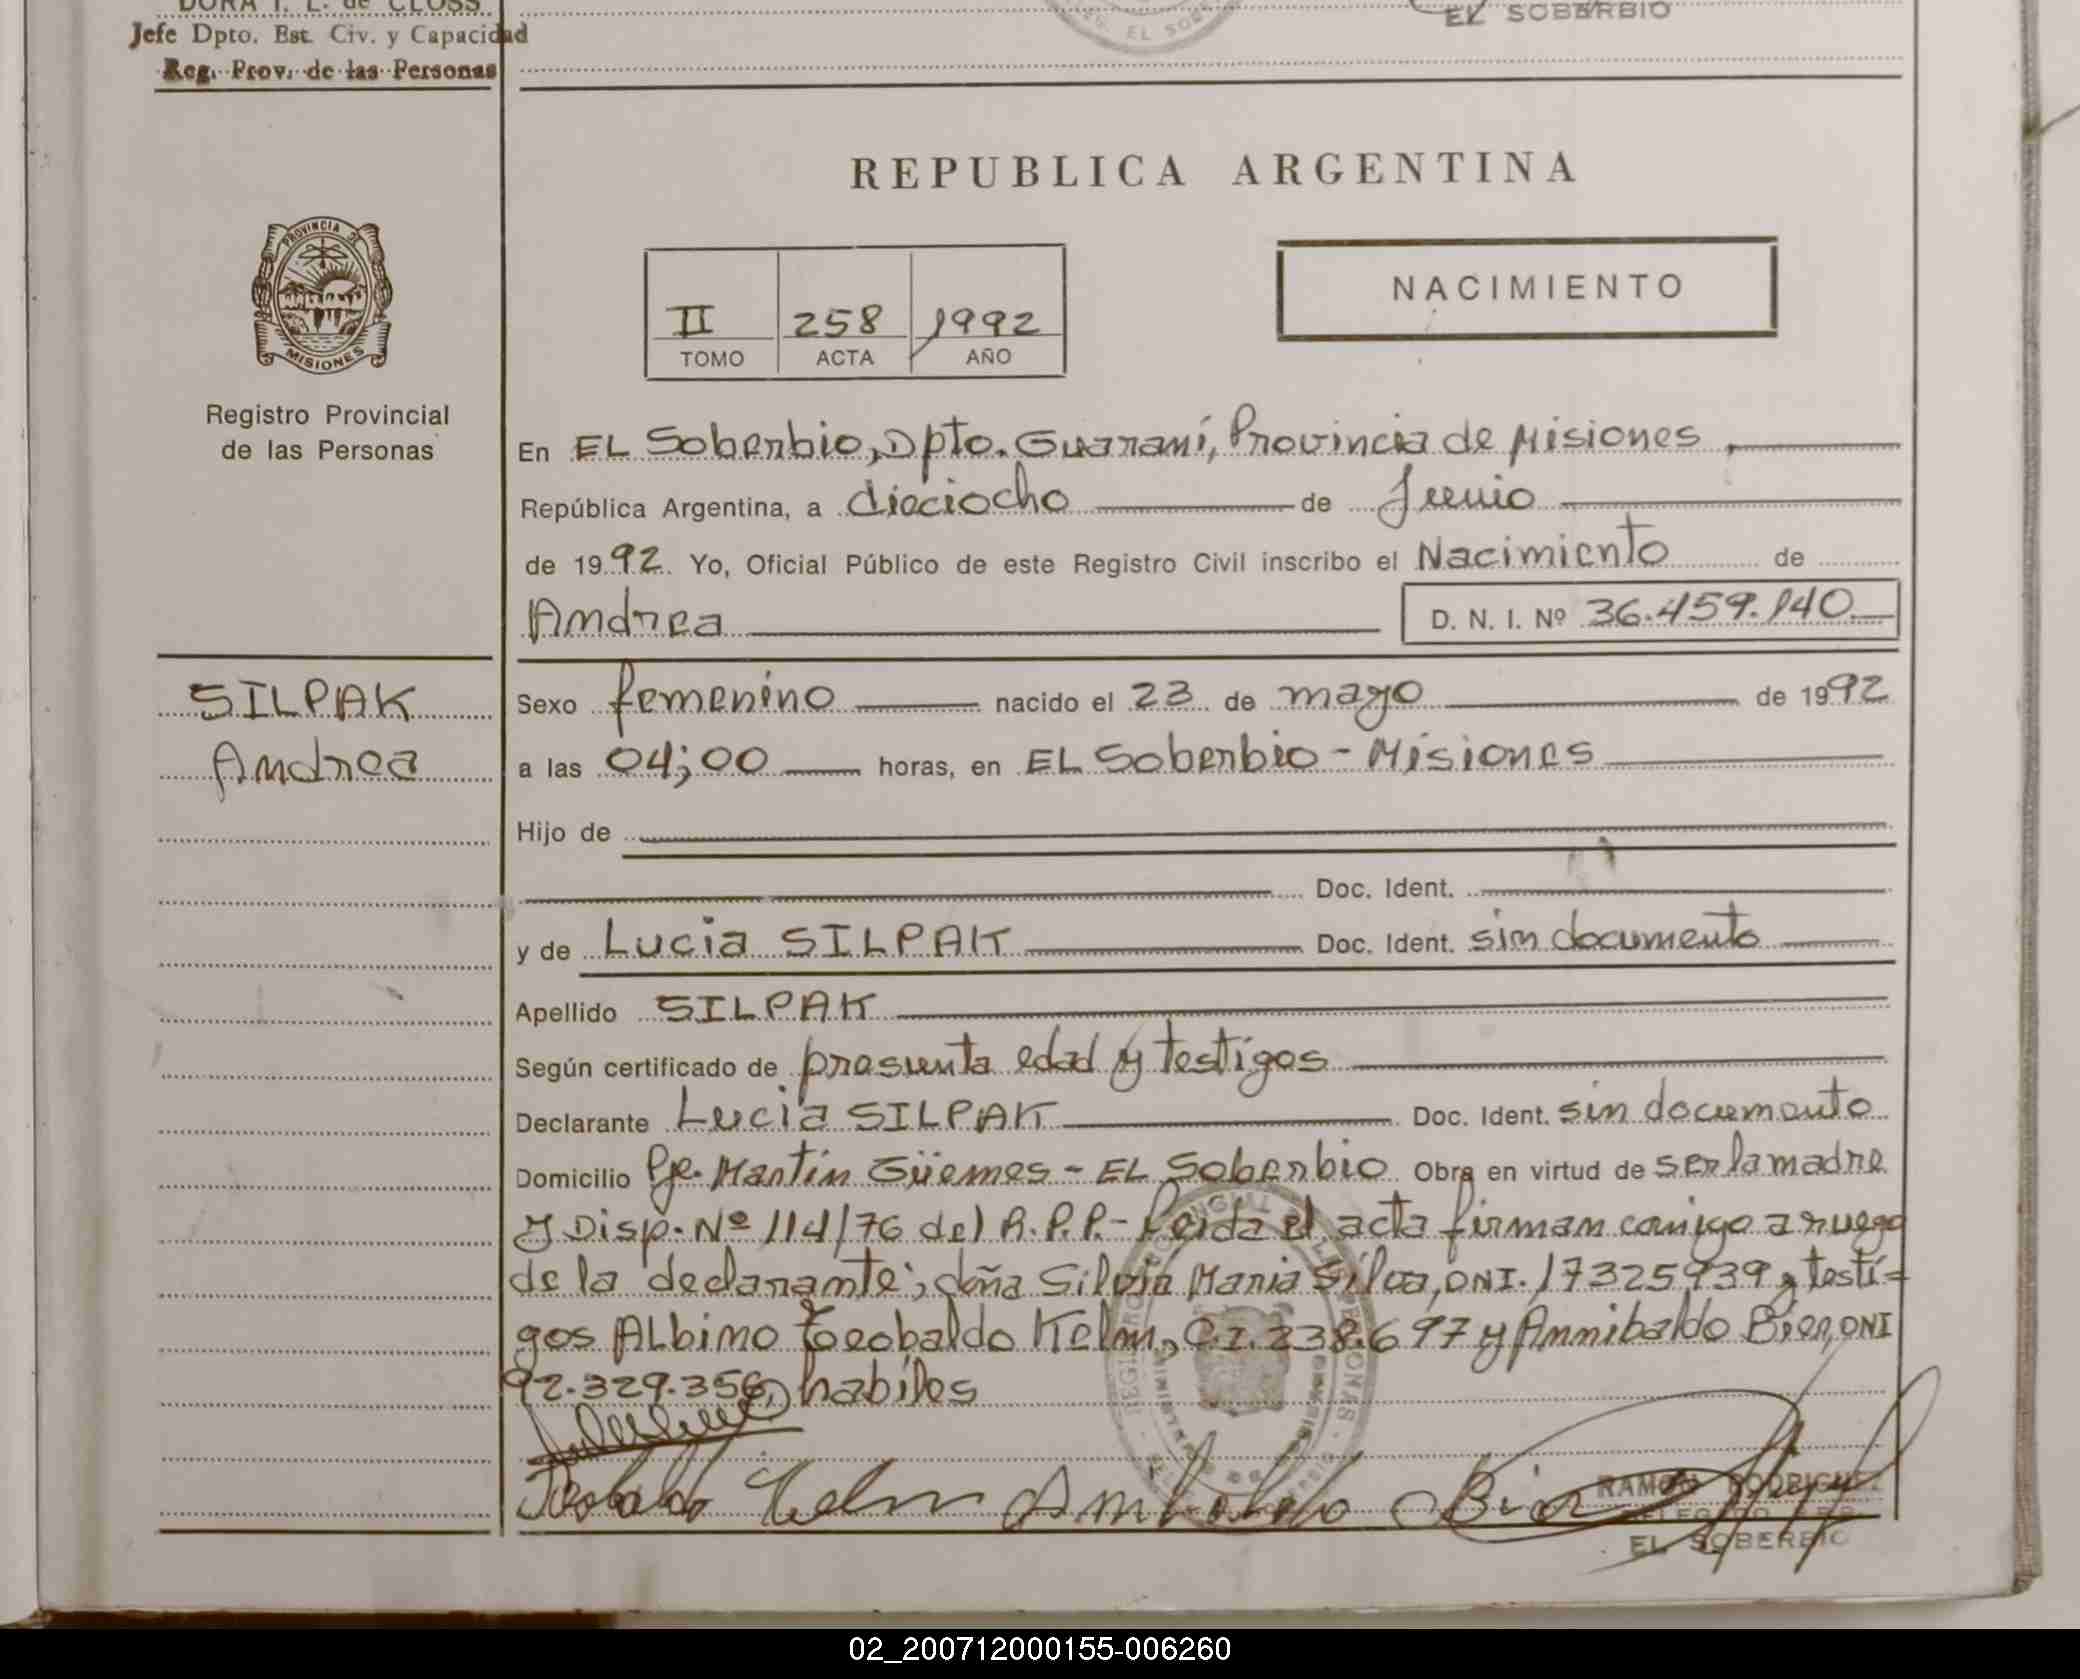 DORA I. L. de CLOSS
Jefe Dpto. Est. Civ. y Capacidad
Reg. Prov. de las Personas
EL SOBERBIO
REPUBLICA ARGENTINA
PROVINCIA DE
MISIONES
Registro Provincial
de las Personas
II 258 1992
TOMO ACTA AÑO
NACIMIENTO
En EL Soberbio, Dpto. Guaraní, Provincia de Misiones,
República Argentina, a dieciocho de Junio
de 1992 Yo, Oficial Público de este Registro Civil inscribo el Nacimiento de
Andrea D. N. I. Nº 36.459.140
SILPAK
Andrea
Sexo femenino nacido el 23 de mayo de 1992
a las 04;00 horas, en EL Soberbio - Misiones
Hijo de
Doc. Ident.
y de Lucia SILPAK Doc. Ident. sin documento
Apellido SILPAK
Según certificado de presunta edad y testigos
Declarante Lucia SILPAK Doc. Ident. sin documento
Domicilio Pje. Martín Güemes - EL Soberbio Obra en virtud de ser la madre
y Disp. Nº 114/76 del R.P.P.- Leida el acta firman conmigo a ruego
de la declarante; doña Silvia Maria Silva, DNI. 17325939 y testi=
gos ALbino Teobaldo Kelm, C.I. 238.697 y Annibaldo Bier, DNI
92.329.356, habiles
Teobaldo Kelm Bier
RAMON RODRIGUEZ
EL SOBERBIO
02_200712000155-006260